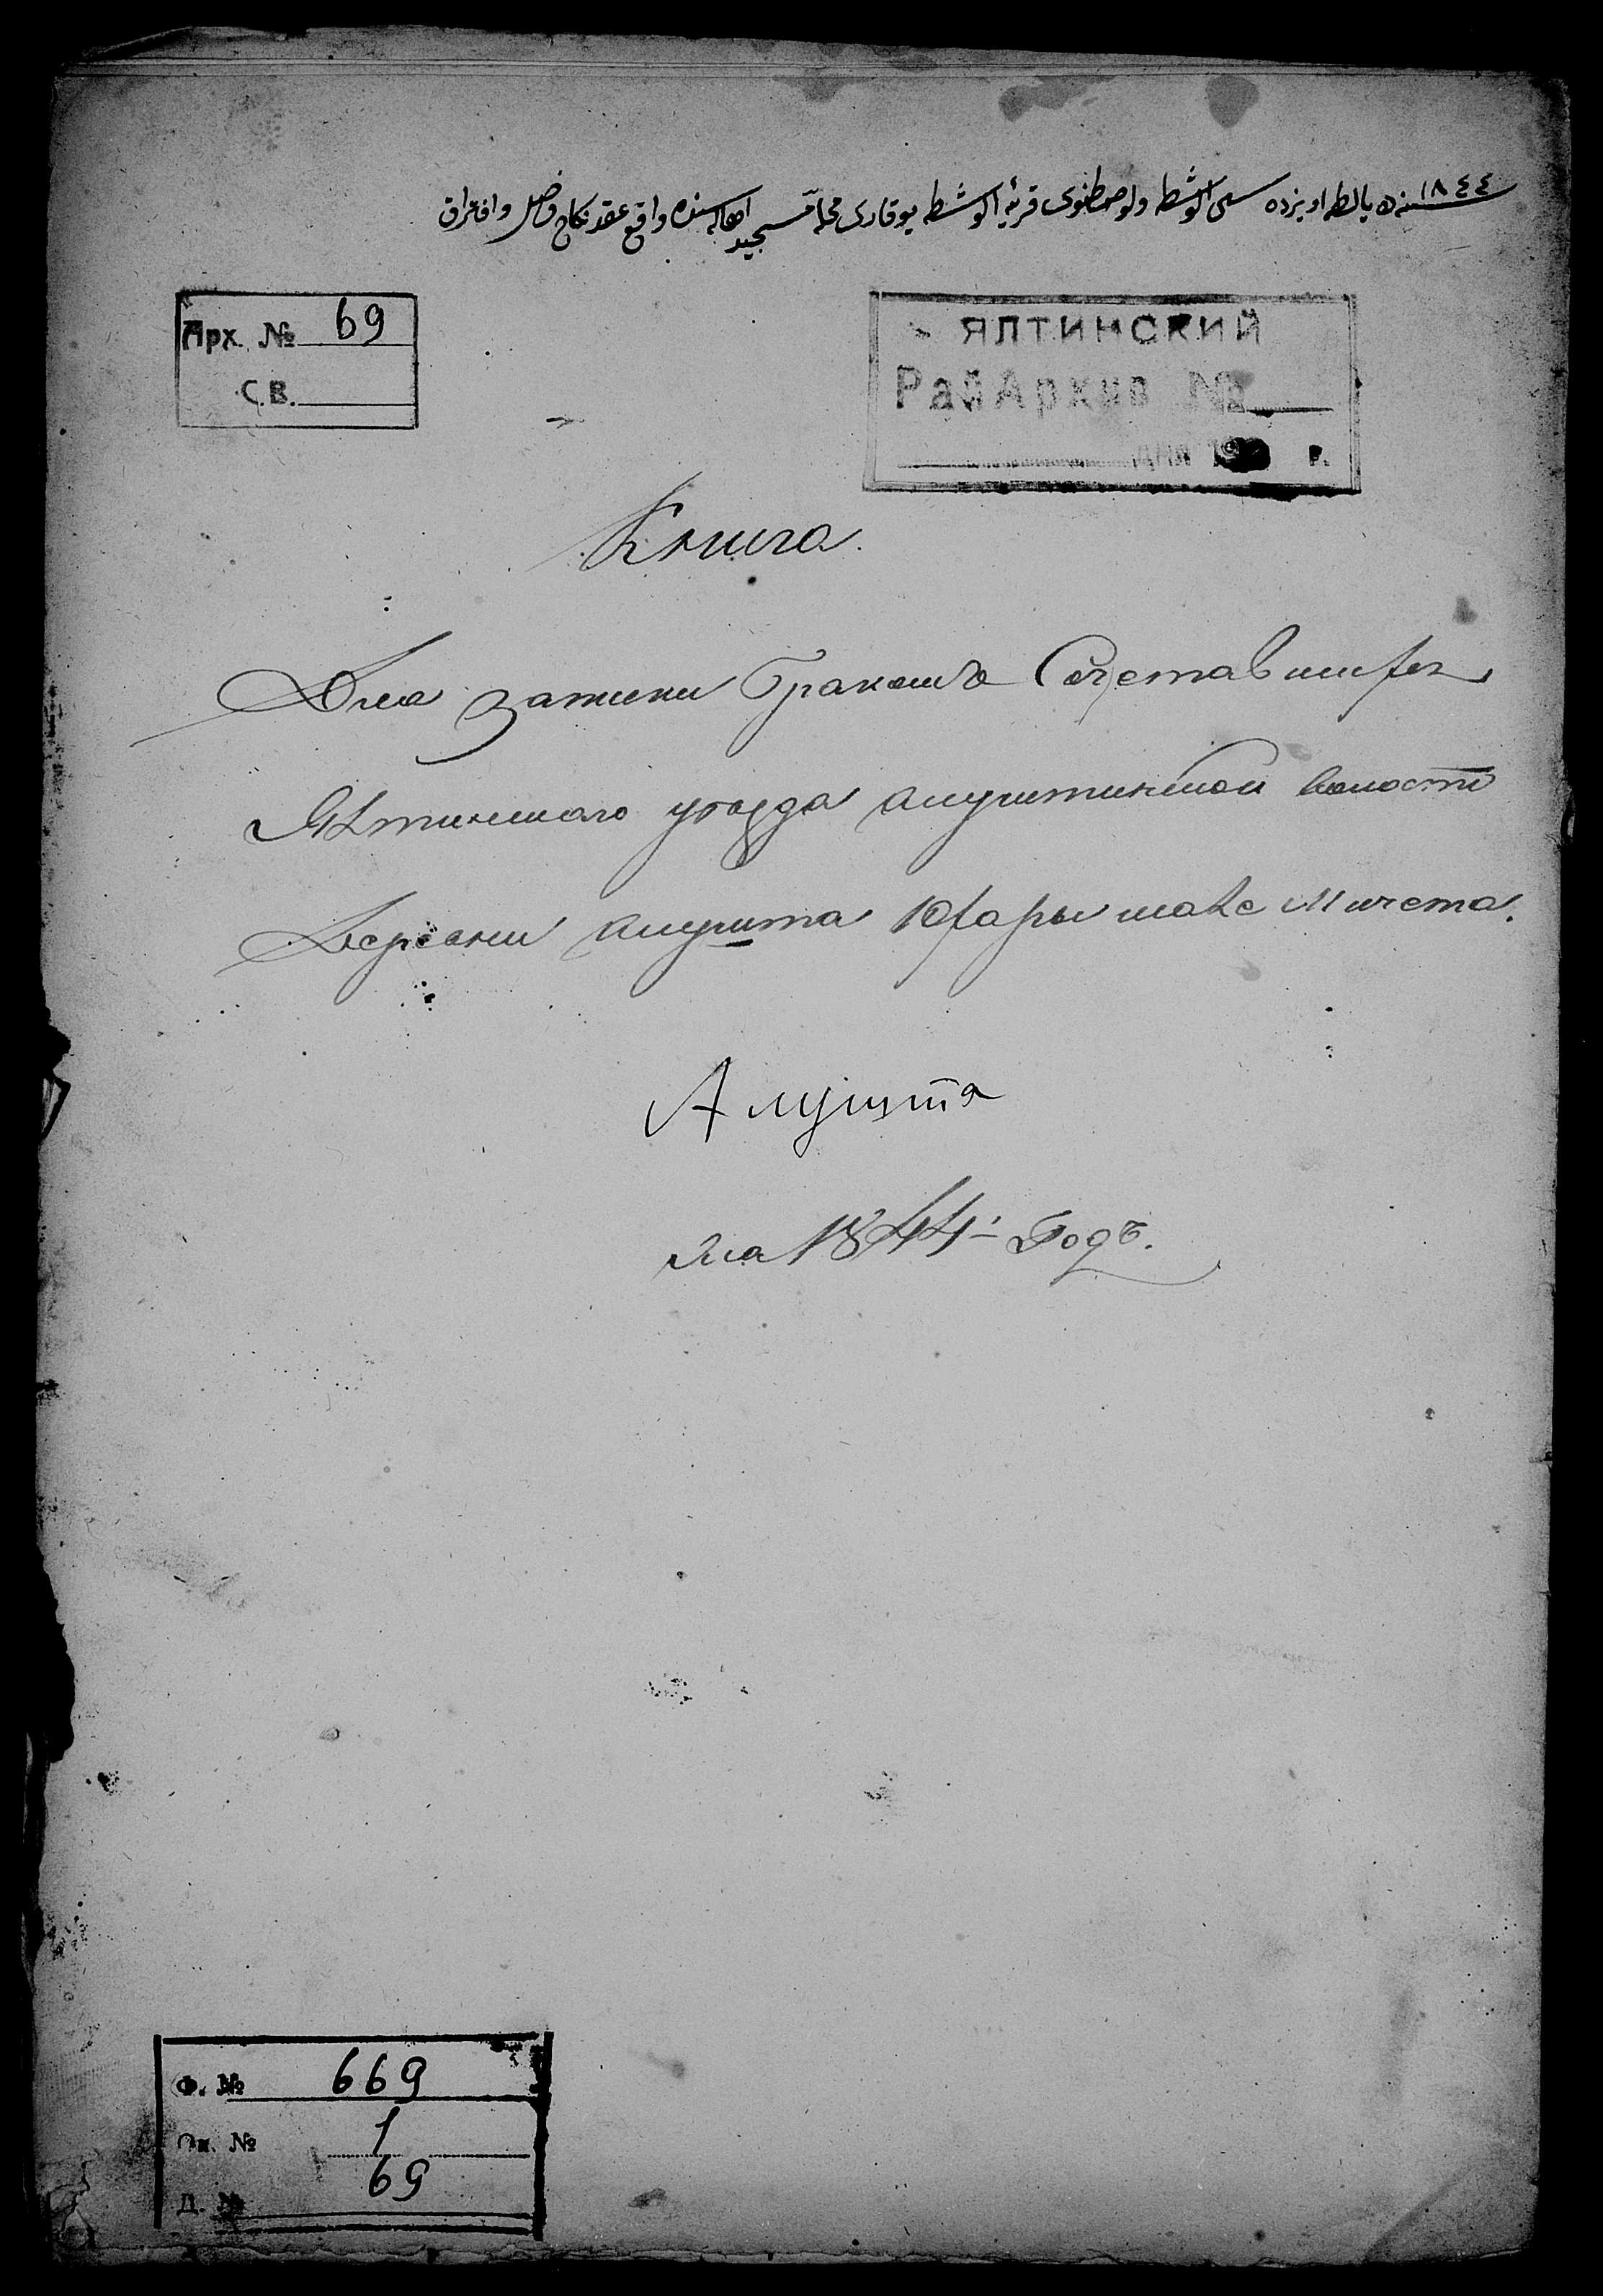 ١٨٤٤ سنه ده يالطه اويزده سى الوشطه ولوصطنوى قريۀ الوشطه يوقارى محله مسجد اهاليسنده واقع عقد نكاح وفصل وافتراق
Арх. № 69
С.В.
ЯЛТИНСКИЙ
РайАрхив №
дня 19 г.
Книга
Для записки браковъ Сочетавшихся
Ялтинскаго уезда алуштинской волости
Деревни алушта Юхары мале Мичета.
Алушта
на 1844- Годъ.
Ф. № 669
Оп. № 1
Д. № 69